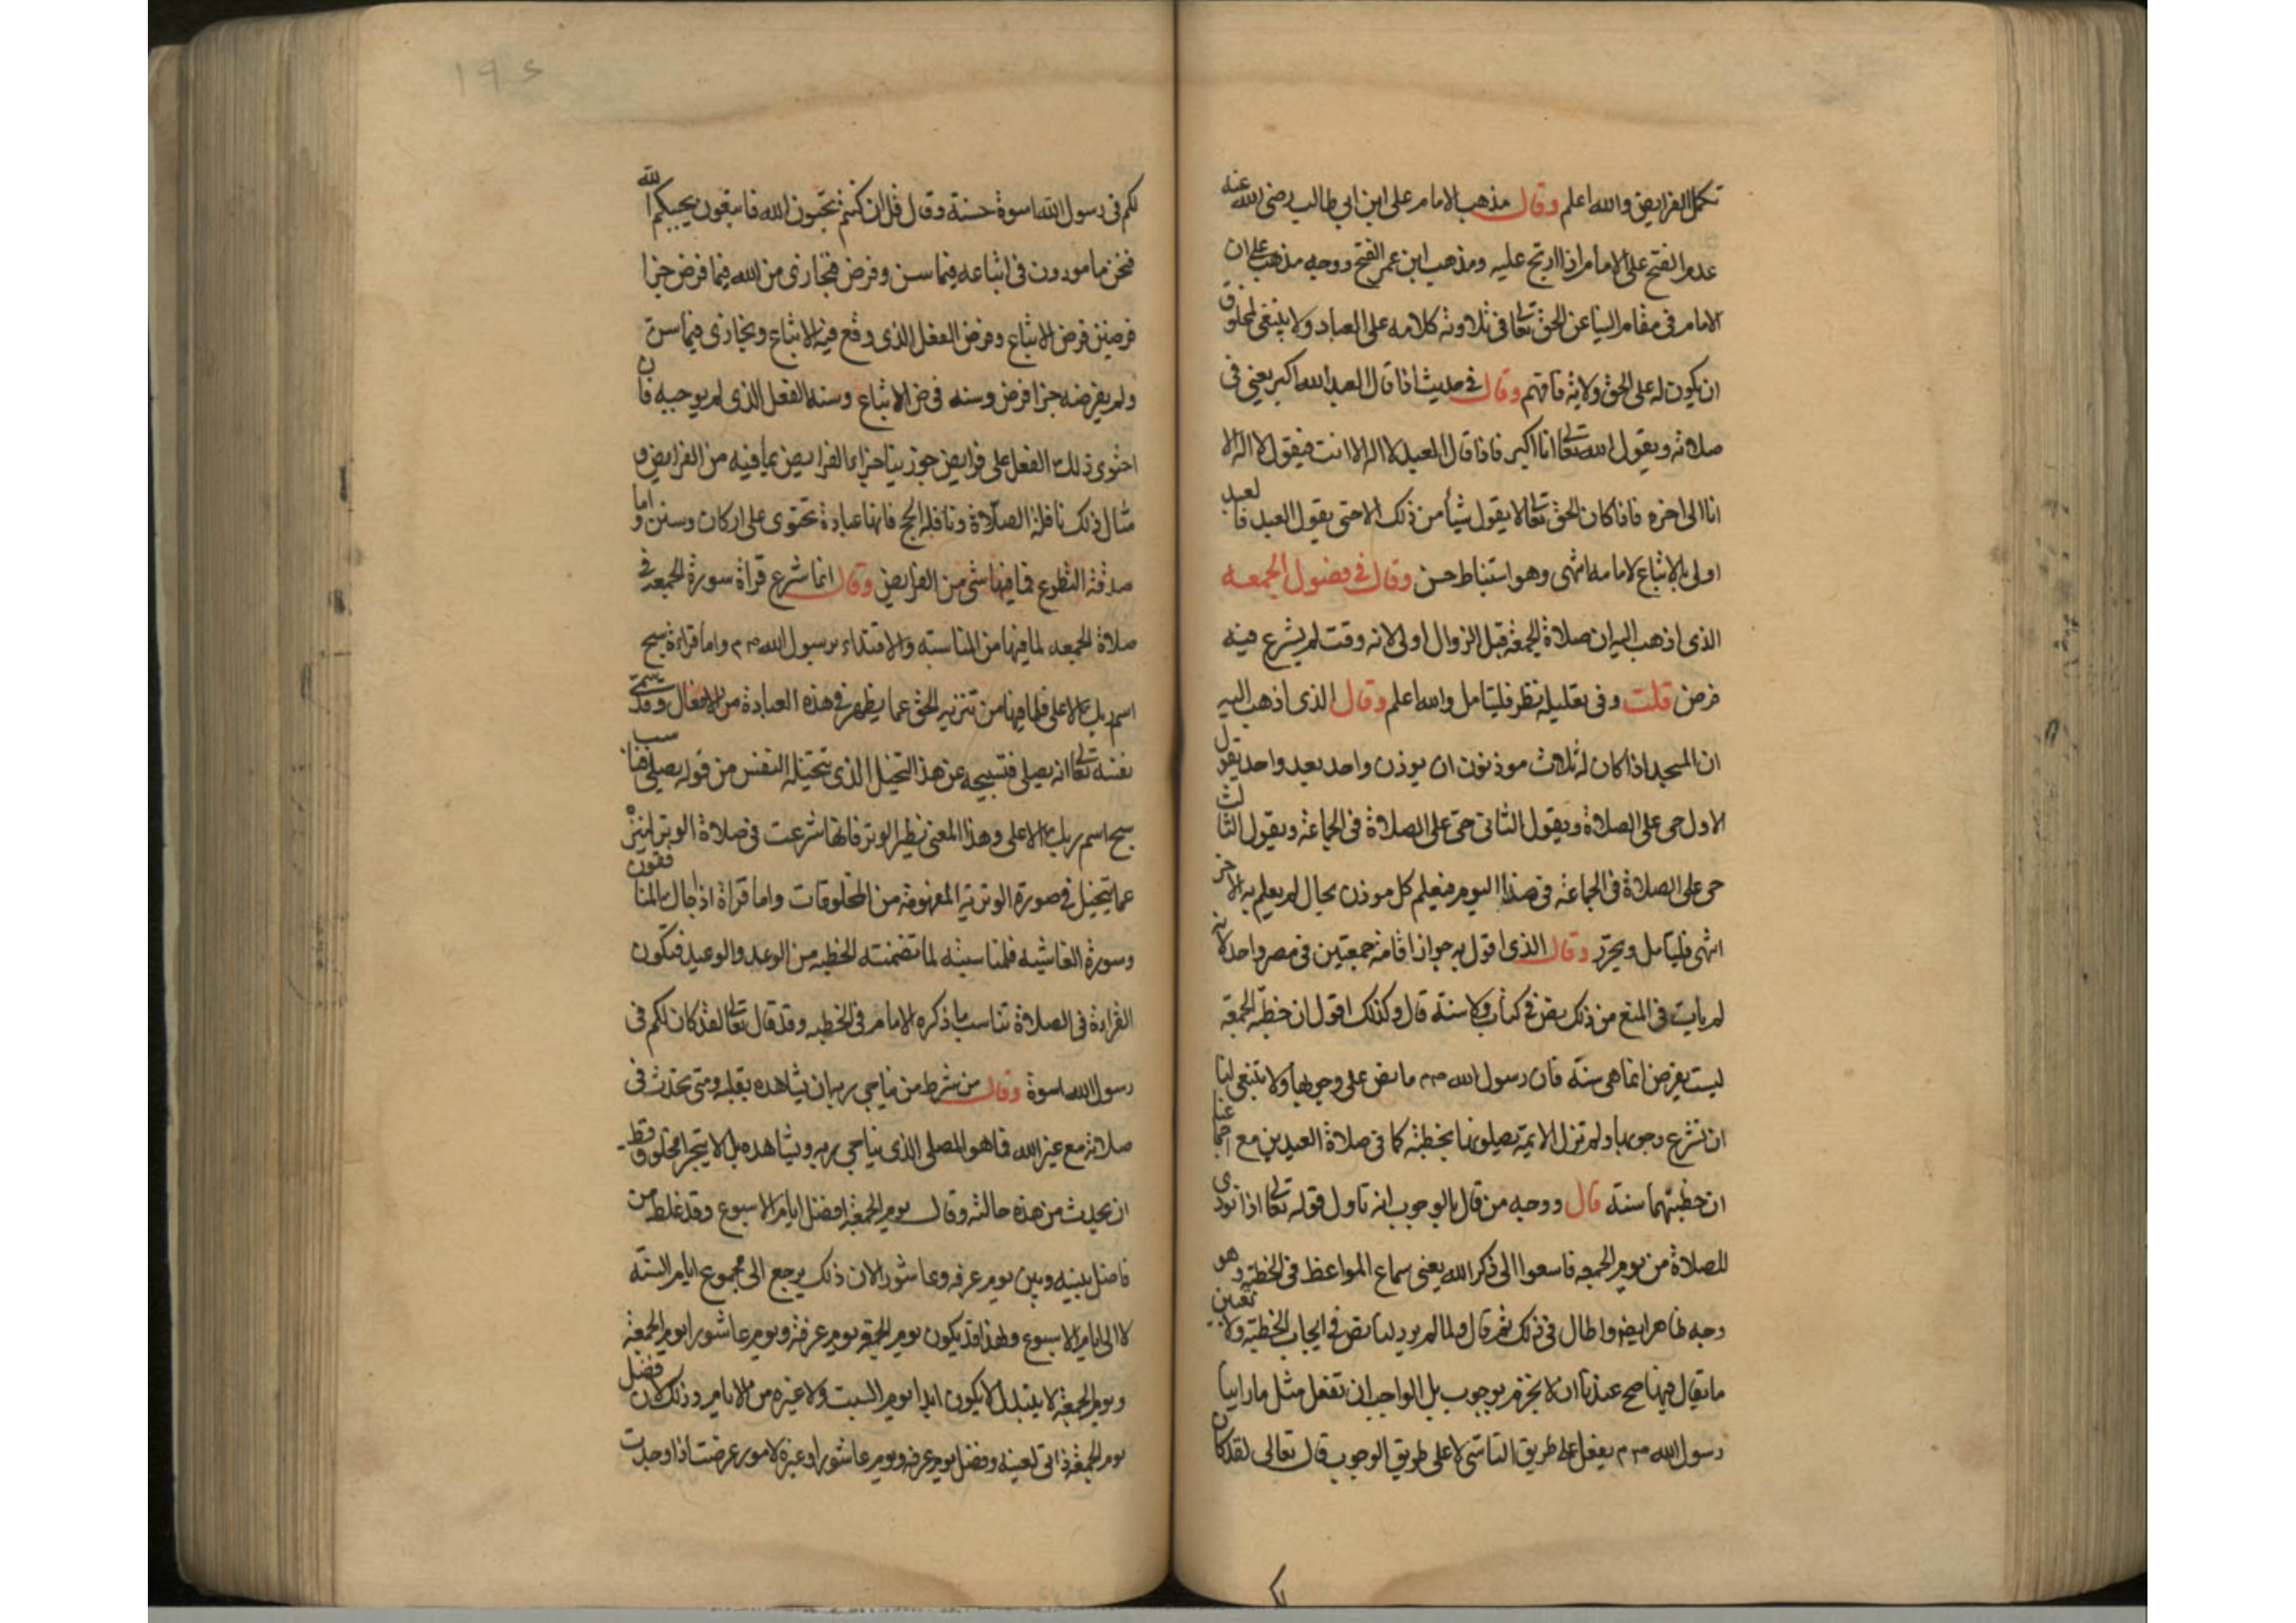 تكمل الفرايض والله اعلم وقال مذهب الامام على ابن ابي طالب رضى الله عنه
عدم الفتح على الامام اذا ارتج عليه ومذهب ابن عمر الفتح ووجه مذهب على ان
الامام فى مقام النيا عن الحق تعالى فى تلاوته كلامه على العباد ولا ينبغى لمخلوق
ان يكون له على الحق ولاية فافهم وقال فى حديث اذا قال العبد الله اكبر يعنى فى
صلاته ويقول الله تعالى انا اكبر فاذا قال العبد لا اله الا انت فيقول لا اله الا
انا الى اخره فاذا كان الحق تعالى لا يقول شيأ من ذلك الا حتى يقول العبد فالعبد
اولى بالاتباع لامامه انتهى وهو استنباط حسن وقال فى فضول الجمعه
الذى اذهب اليه ان صلاة الجمعة قبل الزوال اولى لانه وقت لم يشرع فيه
فرض قلت وفى تعليله نظر فليتامل والله اعلم وقال الذى اذهب اليه
ان المسجد اذا كان له ثلاث موذنون ان يوذن واحد بعد واحد يقول
الاول حى على الصلاة ويقول الثانى حى على الصلاة فى الجماعة ويقول الثالث
حى على الصلاة فى الجماعة فى هذا اليوم فيعلم كل موذن بحال لم يعلم به الاخر
انتهى فليتامل ويحرر وقال الذى اقول به جواز اقامة جمعتين فى مصر واحد لانه
لم يات فى المنع من ذلك نص فى كتاب ولا سنة قال وكذلك اقول ان خطبة الجمعة
ليست بفرض انما هى سنة فان رسول الله صم ما نص على وجوبها ولا ينبغى لنا
ان نشرع وجوبا ولم تزل الايمة يصلونها بخطبة كما فى صلاة العيدين مع اجماعنا
ان خطبتهما سنة قال ووجه من قال بالوجوب انه تاول قوله تعالى اذا نودى
للصلاة من يوم الجمعه فاسعوا الى ذكر الله يعنى سماع المواعظ فى الخطبة وهو
وجه ظاهر ايضا واطال فى ذلك ثم قال ولما لم يرد لنا نص فى ايجاب الخطبة ولا تعيين
ما يقال فيها صح عندنا ان لا نجزم بوجوب بل الواجب ان تفعل مثل ما راينا
رسول الله صم يفعل على طريق التاسى لا على طريق الوجوب قال تعالى لقد كان
لكم
١٩٤
لكم فى رسول الله اسوة حسنة وقال قل ان كنتم تحبون الله فاتبعونى يحببكم الله
فنحن مامورون فى اتباعه فيما سن وفرض فنجازى من الله فيما فرض جزا
فرضين فرض الاتباع وفرض الفعل الذى وقع فيه الاتباع ونجازى فيما سن
ولم يفرضه جزا فرض وسنه فرض الاتباع وسنه الفعل الذى لم يوجبه فان
احتوى ذلك الفعل على فرايض جوزينا جزاء الفرايض بما فيه من الفرايض و
مثال ذلك نافلة الصلاة ونافلة الحج فانها عبادة تحتوى على اركان وسنن واما
صدقة التطوع فما فيها شى من الفرايض وقال انما شرع قراة سورة الجمعة فى
صلاة الجمعه لما فيها من المناسبة والاقتداء برسول الله صم واما قراءة سبح
اسم ربك الاعلى فلما فيها من تنزيه الحق عما يظهر فى هذه العبادة من الافعال وقد سمى
نفسه تعالى انه يصلى فتسبيحه عن هذا التخيل الذى يتخيله النفس من قوله يصلى فناسب
سبح اسم ربك الاعلى وهذا المعنى نظير الوتر فانها شرعت فى صلاة الوتر لتنزه
عما يتخيل فى صورة الوترية المفهومة من المخلوقات واما قراة اذا جاك المنافقون
وسورة الغاشيه فلمناسبته لما تضمنته الخطبه من الوعد والوعيد فتكون
القراءة فى الصلاة تناسب ما ذكره الامام فى الخطبه وقد قال تعالى لقد كان لكم فى
رسول الله اسوة وقال من شرط من يناجى ربه ان يشاهده بقلبه ومتى تحدث فى
صلاته مع غير الله فما هو المصلى الذى يناجى ربه ويشاهده بل لا يتجرا مخلوق قط
ان يحدث من هذه حالته وقال يوم الجمعة افضل ايام الاسبوع وقد غلط من
فاضل بينه وبين يوم عرفه وعاشورا لان ذلك يرجع الى مجموع ايام السنة
لا الى ايام الاسبوع ولهذا قد يكون يوم الجمعة يوم عرفة ويوم عاشورا يوم الجمعة
ويوم الجمعة لا يتبدل لا يكون ابدا يوم السبت ولا غيره من الايام وذلك لان فضل
يوم الجمعة ذاتى لعينه وفضل يوم عرفه ويوم عاشورا وغيره لامور عرضت اذا وجدت